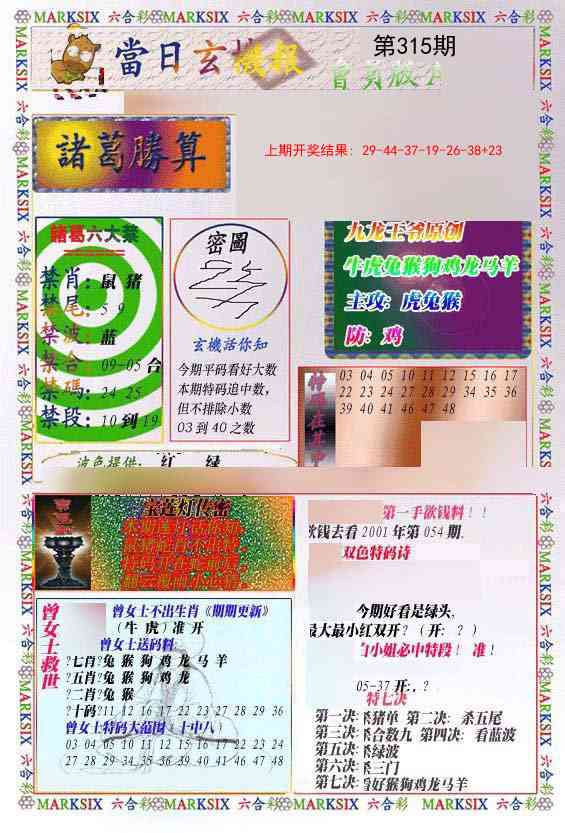 MARKSIX 六合彩 MARKSIX 六合彩 MARKSIX 六合彩 MARKSIX 六合彩
當日玄機報
第315期
諸葛勝算
上期开奖结果: 29-44-37-19-26-38+23
諸葛六大禁
禁肖: 鼠 猪
禁尾: 5 9
禁波: 蓝
禁合: 09-05 合
禁碼: 24 25
禁段: 10 到 19
密圖
玄機話你知
今期平码看好大数
本期特码追中数,
但不排除小数
03 到 40 之数
九龙王爷原创
牛虎兔猴狗鸡龙马羊
主攻: 虎兔猴
防: 鸡
特码在其中
03 04 05 10 11 12 15 16 17
22 23 24 27 28 29 34 35 36
39 40 41 46 47 48
波色提供: 红 绿
宝莲灯传密
第一手欲钱料!!
欲钱去看 2001 年第 054 期.
双色特码诗
今期好看是绿头,
最大最小红双开? (开: ? )
白小姐必中特段! 准!
05-37 开: . ?
特七决
第一决: 杀猪单 第二决: 杀五尾
第三决: 杀合数九 第四决: 看蓝波
第五决: 杀绿波
第六决: 杀三门
第七决: 看好猴狗鸡龙马羊
曾女士救世
曾女士不出生肖《期期更新》
(牛 虎) 准 开
曾女士送码料
?七肖?兔 猴 狗 鸡 龙 马 羊
?五肖?兔 猴 狗 鸡 龙
?二肖?兔 猴
?十码?11 12 16 17 22 23 27 28 29 36
曾女士特码大范围 (十中八)
03 04 05 10 11 12 15 16 17 22 23 24
27 28 29 34 35 36 39 40 41 46 47 48
MARKSIX 六合彩 MARKSIX 六合彩 MARKSIX 六合彩 MARKSIX 六合彩